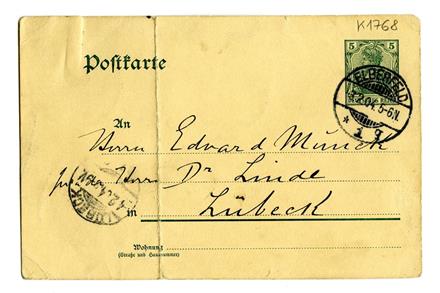 K1768
Postkarte
5 5
ELBERFELD
3.2.04. 5-6N.
* 1 g
An
Herrn Edvard Munck
Herrn Dr Linde
LÜBECK
in Lübeck
Wohnung
(Straße und Hausnummer)